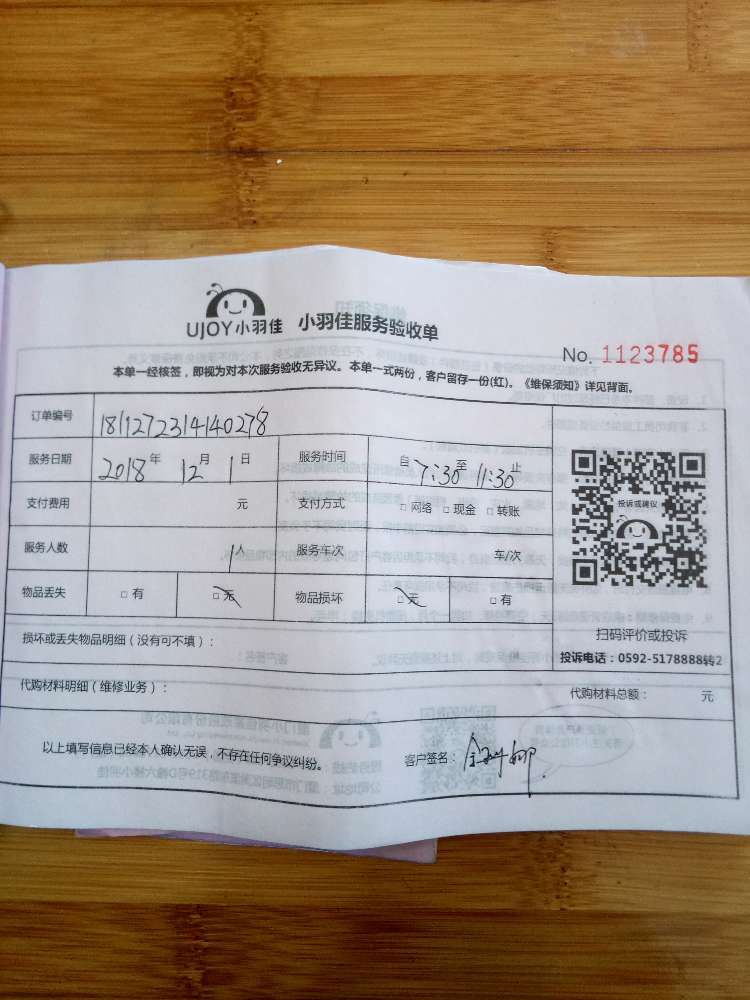 UJOY小羽佳 小羽佳服务验收单
No. 1123785
本单一经核签，即视为对本次服务验收无异议。本单一式两份，客户留存一份(红)。《维保须知》详见背面。
订单编号 1811272314140278
服务日期 2018年12月1日 服务时间 自7:30至11:30止
支付费用 元 支付方式 □网络 □现金 □转账
服务人数 1人 服务车次 车/次
物品丢失 □有 □无 物品损坏 □无 □有
投诉或建议
扫码评价或投诉
投诉电话：0592-5178888转2
损坏或丢失物品明细（没有可不填）：
代购材料明细（维修业务）： 代购材料总额： 元
以上填写信息已经本人确认无误，不存在任何争议纠纷。 客户签名：